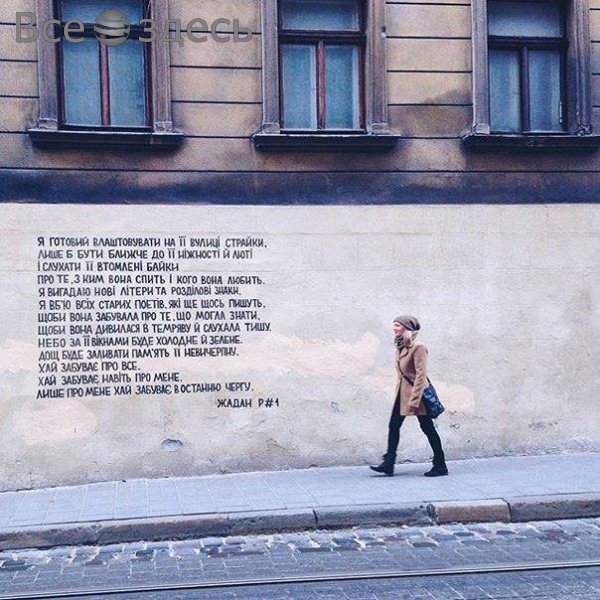 Все здесь
Я ГОТОВИЙ ВЛАШТОВУВАТИ НА ЇЇ ВУЛИЦІ СТРАЙКИ,
ЛИШЕ Б БУТИ БЛИЖЧЕ ДО ЇЇ НІЖНОСТІ Й ЛЮТІ
І СЛУХАТИ ЇЇ ВТОМЛЕНІ БАЙКИ
ПРО ТЕ, З КИМ ВОНА СПИТЬ І КОГО ВОНА ЛЮБИТЬ.
Я ВИГАДАЮ НОВІ ЛІТЕРИ ТА РОЗДІЛОВІ ЗНАКИ,
Я ВБ'Ю ВСІХ СТАРИХ ПОЕТІВ, ЯКІ ЩЕ ЩОСЬ ПИШУТЬ,
ЩОБИ ВОНА ЗАБУВАЛА ПРО ТЕ, ЩО МОГЛА ЗНАТИ,
ЩОБИ ВОНА ДИВИЛАСЯ В ТЕМРЯВУ Й СЛУХАЛА ТИШУ.
НЕБО ЗА ЇЇ ВІКНАМИ БУДЕ ХОЛОДНЕ Й ЗЕЛЕНЕ.
ДОЩ БУДЕ ЗАЛИВАТИ ПАМ'ЯТЬ ЇЇ НЕВИЧЕРПНУ.
ХАЙ ЗАБУВАЄ ПРО ВСЕ,
ХАЙ ЗАБУВАЄ НАВІТЬ ПРО МЕНЕ,
ЛИШЕ ПРО МЕНЕ ХАЙ ЗАБУВАЄ В ОСТАННЮ ЧЕРГУ.
ЖАДАН Р#1